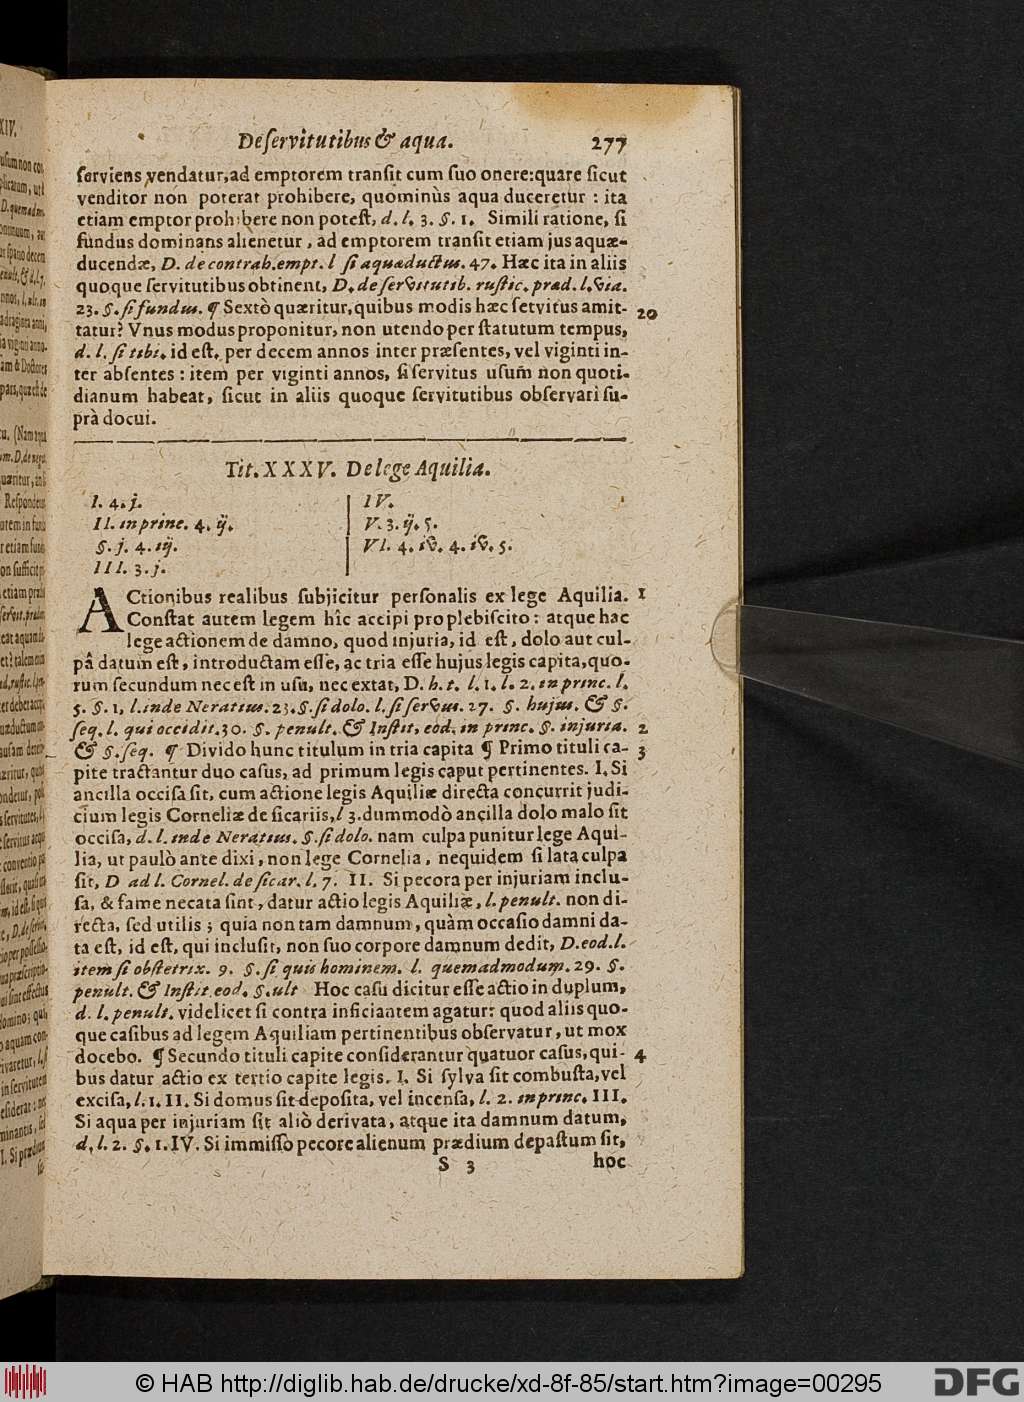 De servitutibus & aqua. 277
serviens vendatur, ad emptorem transit cum suo onere: quare sicut
venditor non poterat prohibere, quominùs aqua duceretur : ita
etiam emptor prohibere non potest, d. l. 3. §. 1. Simili ratione, si
fundus dominans alienetur, ad emptorem transit etiam jus aquæ-
ducendæ, D. de contrah. empt. l si aquæductus. 47. Hæc ita in aliis
quoque servitutibus obtinent, D. de servitutib. rustic. præd. l. via.
23. §. si fundus. ¶ Sextò quæritur, quibus modis hæc servitus amit- 20
tatur? Vnus modus proponitur, non utendo per statutum tempus,
d. l. si tibi. id est, per decem annos inter præsentes, vel viginti in-
ter absentes : item per viginti annos, si servitus usum non quoti-
dianum habeat, sicut in aliis quoque servitutibus observari su-
prà docui.
Tit. XXXV. De lege Aquilia.
I. 4. j.
II. in princ. 4. ij.
§. j. 4. iij.
III. 3. j.
IV.
V. 3. ij. 5.
VI. 4. iv. 4. iv. 5.
ACtionibus realibus subjicitur personalis ex lege Aquilia. 1
Constat autem legem hîc accipi pro plebiscito : atque hac
lege actionem de damno, quod injuria, id est, dolo aut cul-
pâ datum est, introductam esse, ac tria esse hujus legis capita, quo-
rum secundum nec est in usu, nec extat, D. h. t. l. 1. l. 2. in princ. l.
5. §. 1, l. inde Neratius. 23. §. si dolo. l. si servus. 27. §. hujus. & §.
seq. l. qui occidit. 30. §. penult. & Instit. eod. in princ. §. injuria. 2
& §. seq. ¶ Divido hunc titulum in tria capita ¶ Primo tituli ca- 3
pite tractantur duo casus, ad primum legis caput pertinentes. I. Si
ancilla occisa sit, cum actione legis Aquiliæ directa concurrit judi-
cium legis Corneliæ de sicariis, l 3. dummodò ancilla dolo malo sit
occisa, d. l. inde Neratius. §. si dolo. nam culpa punitur lege Aqui-
lia, ut paulò ante dixi, non lege Cornelia, nequidem si lata culpa
sit, D ad l. Cornel. de sicar. l. 7. II. Si pecora per injuriam inclu-
sa, & fame necata sint, datur actio legis Aquiliæ, l. penult. non di-
recta, sed utilis ; quia non tam damnum, quàm occasio damni da-
ta est, id est, qui inclusit, non suo corpore damnum dedit, D. eod. l.
item si obstetrix. 9. §. si quis hominem. l. quemadmodum. 29. §.
penult. & Instit. eod. §. ult Hoc casu dicitur esse actio in duplum,
d. l. penult. videlicet si contra inficiantem agatur: quod aliis quo-
que casibus ad legem Aquiliam pertinentibus observatur, ut mox
docebo. ¶ Secundo tituli capite considerantur quatuor casus, qui- 4
bus datur actio ex tertio capite legis. I. Si sylva sit combusta, vel
excisa, l. 1. II. Si domus sit deposita, vel incensa, l. 2. in princ. III.
Si aqua per injuriam sit aliò derivata, atque ita damnum datum,
d. l. 2. §. 1. IV. Si immisso pecore alienum prædium depastum sit,
S 3 hoc
© HAB http://diglib.hab.de/drucke/xd-8f-85/start.htm?image=00295
DFG